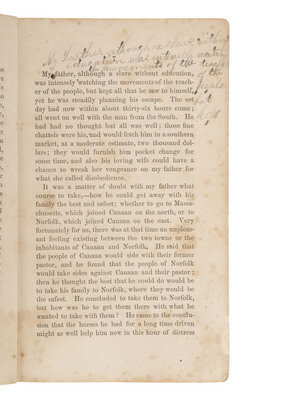 My Father, although a slave without
education was intensely watch
the movements of the teacher
of the
people
but
My father, although a slave without education,
was intensely watching the movements of the teach-
er of the people, but kept all that he saw to himself,
yet he was steadily planning his escape. The set
day had now within about thirty-six hours come;
all went on well with the man from the South. He
had had no thought but all was well; those fine
chattels were his, and would fetch him in a southern
market, at a moderate estimate, two thousand dol-
lars; they would furnish him pocket change for
some time, and also his loving wife could have a
chance to wreak her vengeance on my father for
what she called disobedience.
It was a matter of doubt with my father what
course to take,—how he could get away with his
family the best and safest; whether to go to Massa-
chusetts, which joined Canaan on the north, or to
Norfolk, which joined Canaan on the east. Very
fortunately for us, there was at that time an unpleas-
ant feeling existing between the two towns or the
inhabitants of Canaan and Norfolk. He said that
the people of Canaan would side with their former
pastor, and he found that the people of Norfolk
would take sides against Canaan and their pastor;
then he thought the best that he could do would be
to take his family to Norfolk, where they would be
the safest. He concluded to take them to Norfolk,
but how was he to get them there with what he
wanted to take with them? He came to the conclu-
sion that the horses he had for a long time driven
might as well help him now in this hour of distress